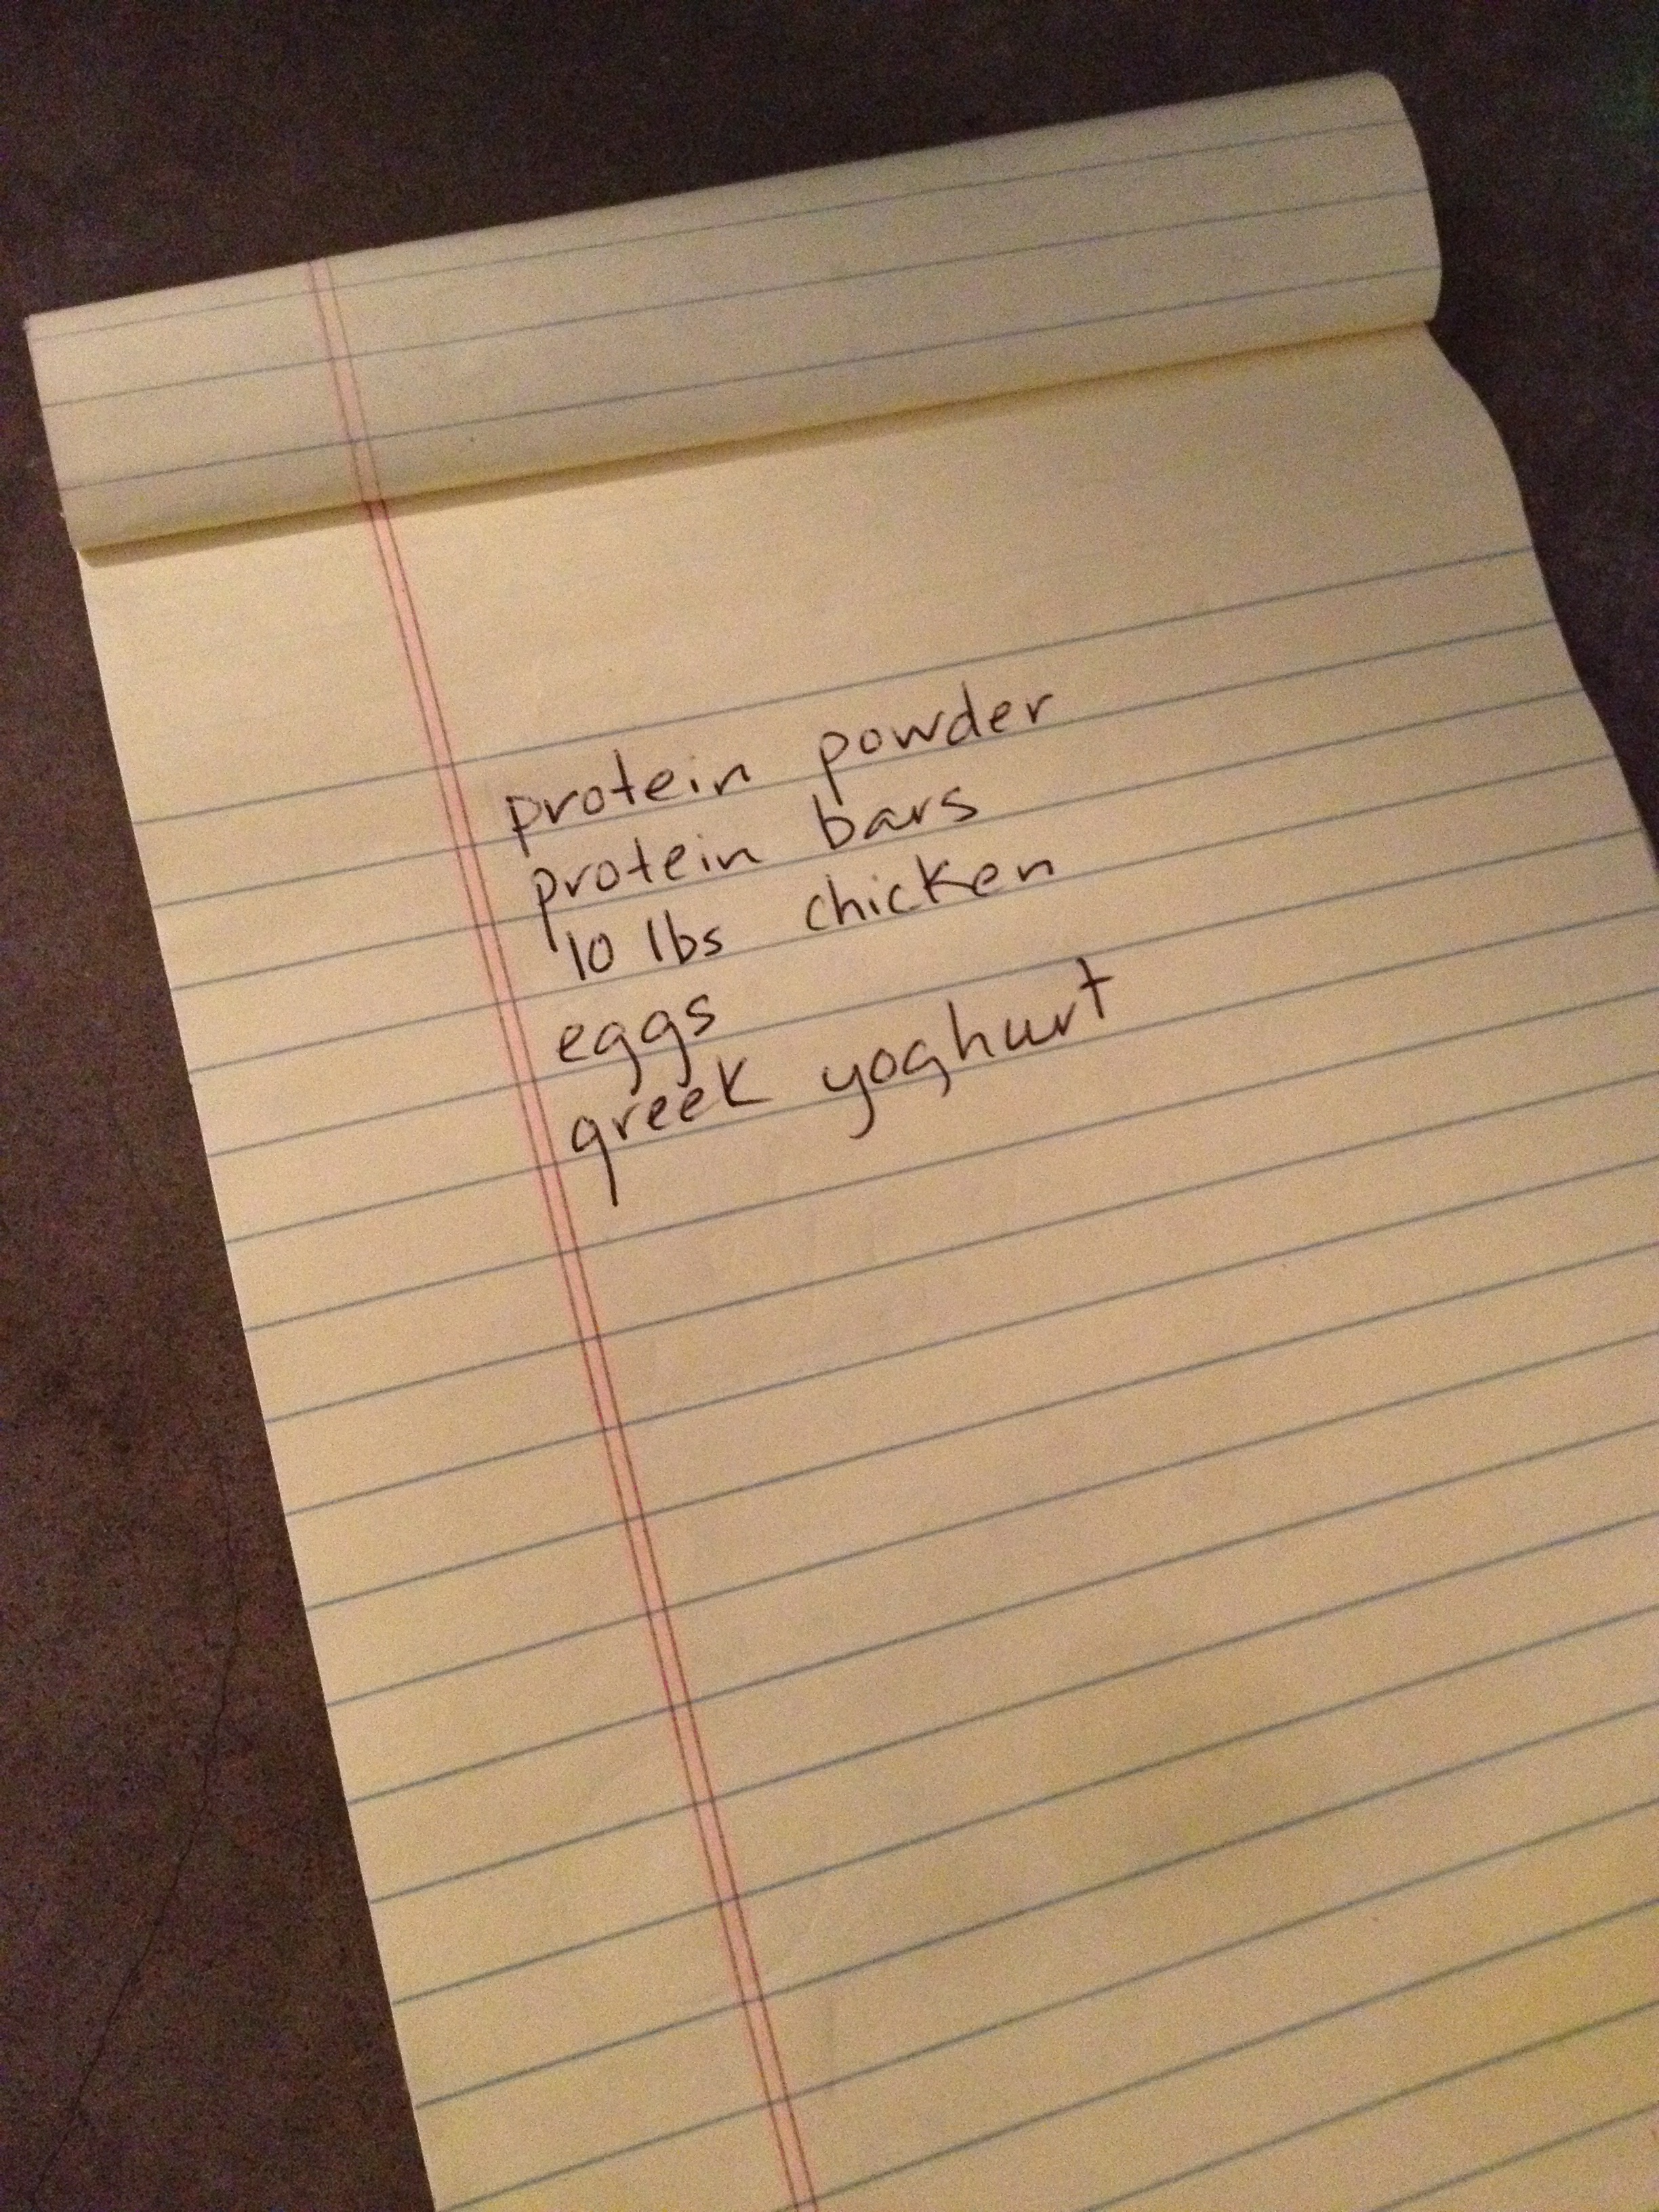 protein powder
protein bars
10 lbs chicken
eggs
greek yoghurt